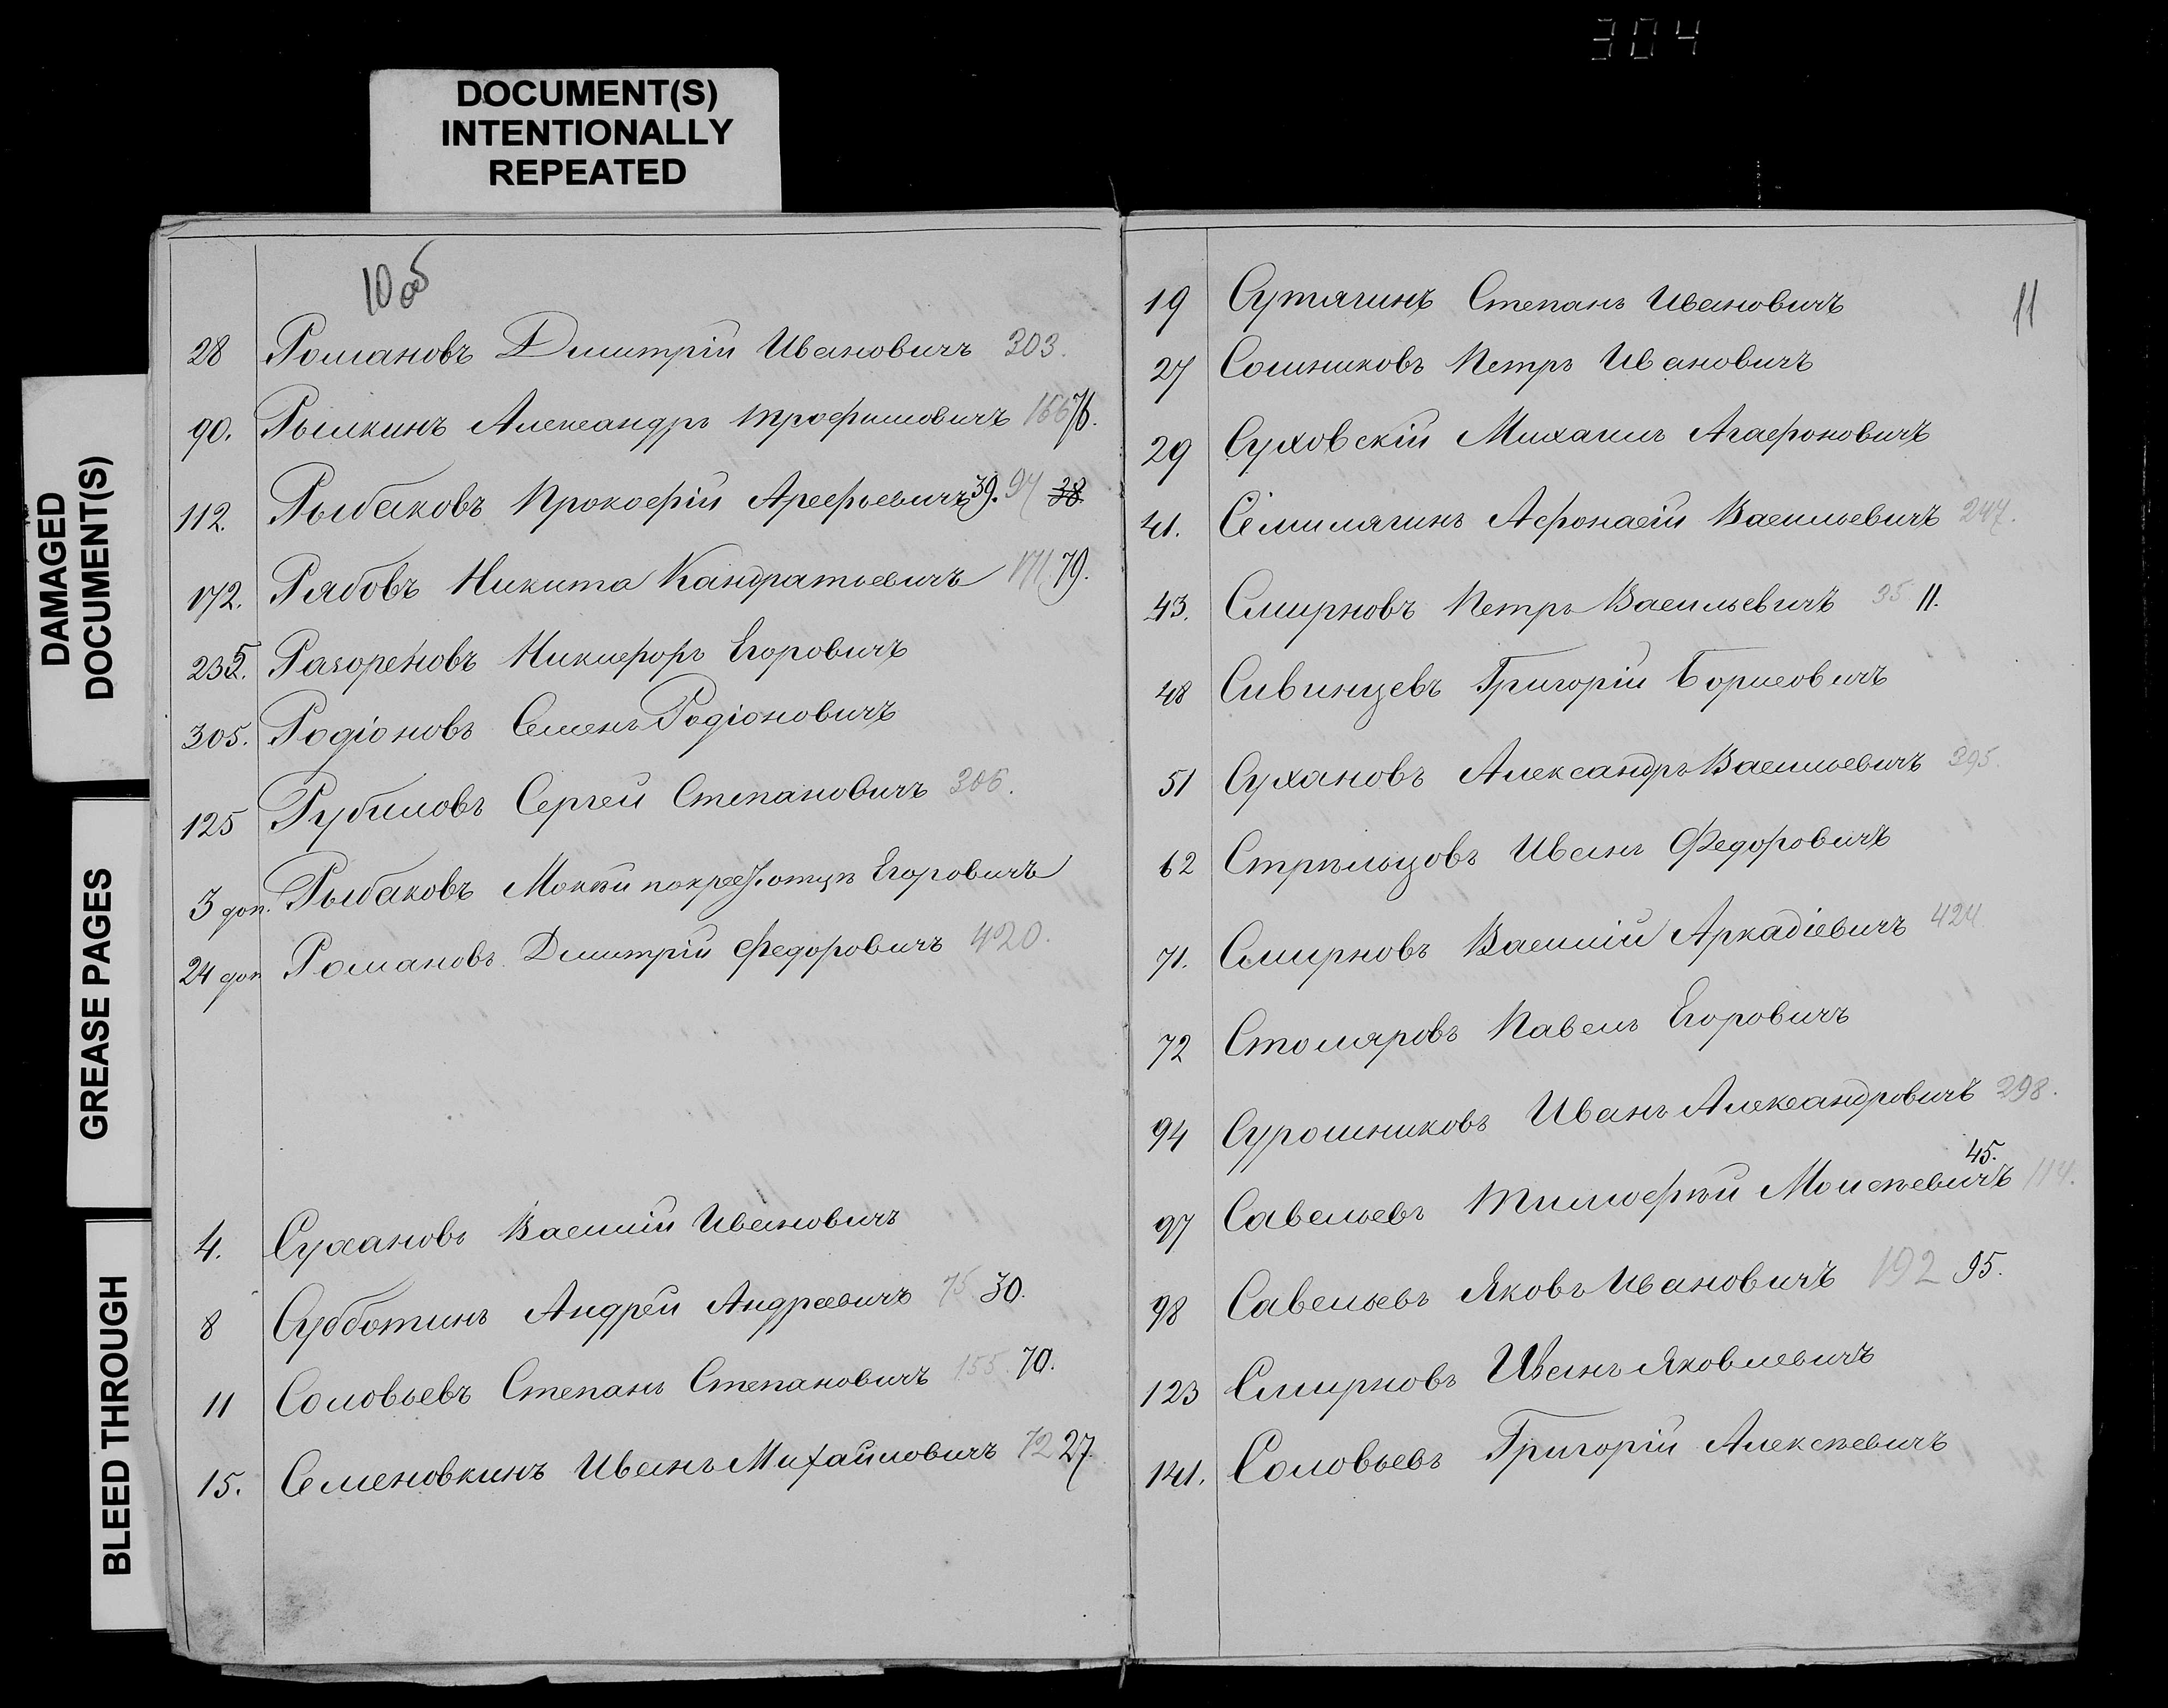 304
DOCUMENT(S)
INTENTIONALLY
REPEATED
DAMAGED
DOCUMENT(S)
GREASE PAGES
BLEED THROUGH
10 об
28 Романовъ Дмитрій Ивановичъ 303.
90. Рылкинъ Александръ Трофимовичъ 166 76.
112. Рыбаковъ Прокофій Арефьевичъ 39. 94 38.
172. Рябовъ Никита Кандратьевичъ 171 79.
235. Разореновъ Никифоръ Егоровичъ
305. Родіоновъ Семенъ Родіоновичъ
125 Рубиловъ Сергей Степановичъ 306.
3 доп. Рыбаковъ Мокѣй Егоровичъ
24 доп Романовъ Дмитрій Федоровичъ 420.
4. Сухановъ Василій Ивановичъ
8 Субботинъ Андрей Андреевичъ 75 30.
11 Соловьевъ Степанъ Степановичъ 155. 70.
15. Семеновкинъ Иванъ Михайловичъ 72 27.
11
19 Сутягинъ Степанъ Ивановичъ
27 Сошниковъ Петръ Ивановичъ
29 Суховскій Михаилъ Агафоновичъ
41. Симилягинъ Афонасій Васильевичъ 247.
43. Смирновъ Петръ Васильевичъ 35 11.
48 Сивинцевъ Григорій Борисовичъ
51 Сухановъ Александръ Васильевичъ 395.
62 Стрѣльцовъ Иванъ Федоровичъ
71. Смирновъ Василій Аркадіевичъ 424
72 Столяровъ Павелъ Егоровичъ
94 Сурошниковъ Иванъ Александровичъ 298.
97 Савельевъ Тимофѣй Моисѣевичъ 45. 114.
98 Савельевъ Яковъ Ивановичъ 192 95.
123 Смирновъ Иванъ Яковлевичъ
141. Соловьевъ Григорій Алексѣевичъ